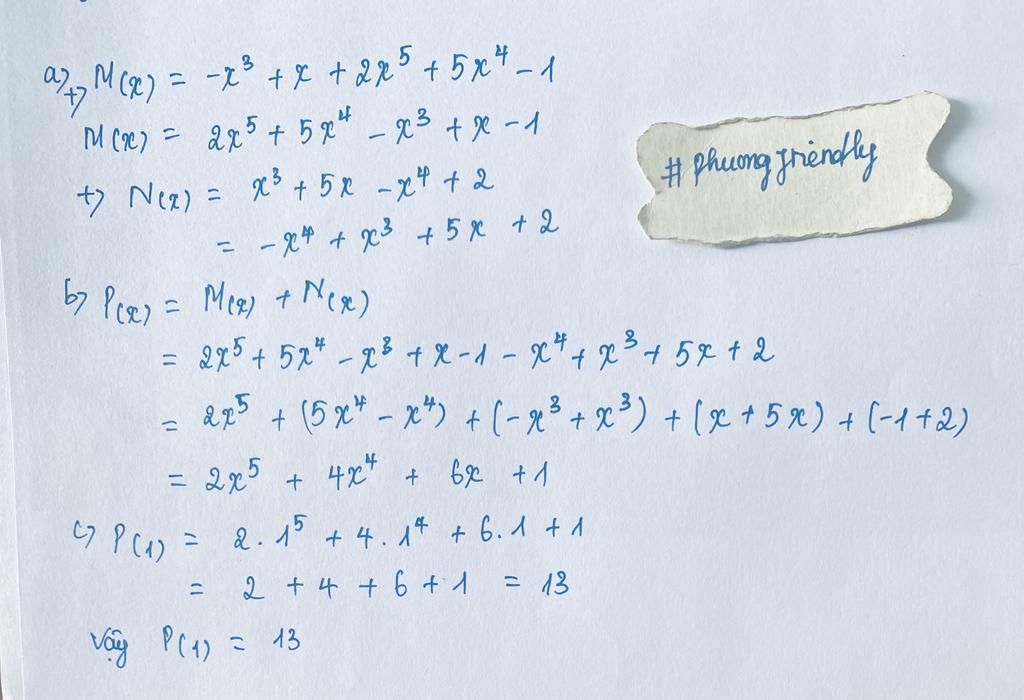 a) +) M(x) = -x³ + x + 2x⁵ + 5x⁴ - 1
M(x) = 2x⁵ + 5x⁴ - x³ + x - 1
+) N(x) = x³ + 5x - x⁴ + 2
= -x⁴ + x³ + 5x + 2
# phuong friendly
b) P(x) = M(x) + N(x)
= 2x⁵ + 5x⁴ - x³ + x - 1 - x⁴ + x³ + 5x + 2
= 2x⁵ + (5x⁴ - x⁴) + (-x³ + x³) + (x + 5x) + (-1 + 2)
= 2x⁵ + 4x⁴ + 6x + 1
c) P(1) = 2.1⁵ + 4.1⁴ + 6.1 + 1
= 2 + 4 + 6 + 1 = 13
Vậy P(1) = 13